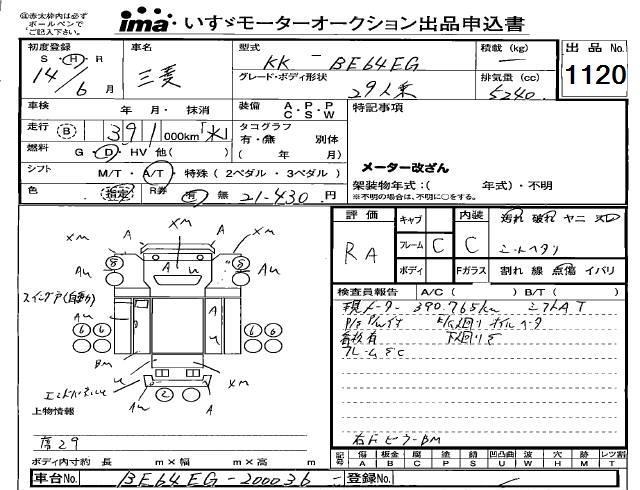 ㊟赤太枠内は必ず
ボールペンで
ご記入下さい。
ima・いすゞモーターオークション出品申込書
初度登録 車名 型式 積載(kg) 出品No.
S・H・R
14年 6月 三菱 KK - BE64EG 1120
グレード・ボディ形状 排気量(cc)
29人乗 5240
車検 年 月・抹消 装備 A・P・P 特記事項
C・S・W
走行 B 391,000km「水」 タコグラフ
有・無 別体
燃料 G・D・HV 他( ) ( 年 月) メーター改ざん
シフト M/T・A/T・特殊(2ペダル・3ペダル) 架装物年式:( 年式)・不明
色 指定 R券 有 無 21-430円 ※不明の場合は、不明に○をする。
評価 キャブ 内装 汚れ 破れ ヤニ スレ
RA フレーム C C シートヘタリ
ボディ Fガラス 割れ 線 点傷 イバリ
検査員報告 A/C( ) B/T( )
現メーター 390.765km シフトAT
フレームさC
右Fピラ-BM
XM A XM
S A u S
Au Au
スイングア(自動)
Au A
6 6 6 6
BM u
u XM
Au 2 A
上物情報
席29
ボディ内寸約 長 m×幅 m×高 m
記号 傷 板金 腐 塗 錆 凹凸曲 波 穴 跡 レツ割
A B C P S U W H M T
車台No. BE64EG-200036 登録No.